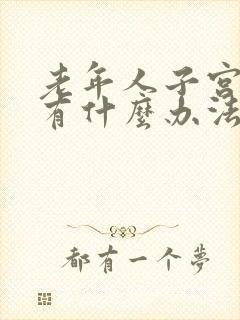 老年人子宫
有什麼办法
都有一个夢